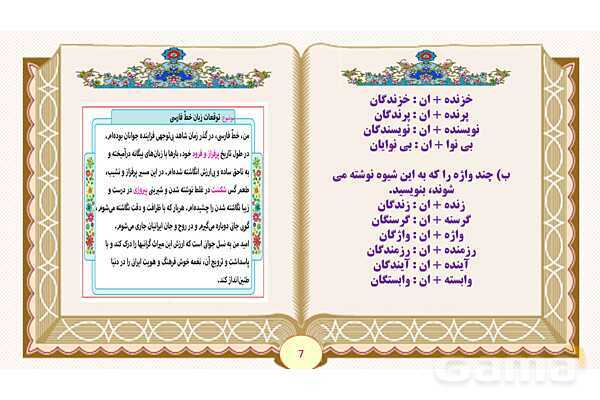 خزنده + ان : خزندگان
پرنده + ان : پرندگان
نویسنده + ان : نویسندگان
بی نوا + ان : بی نوایان
ب) چند واژه را که به این شیوه نوشته می
شوند، بنویسید.
زنده + ان : زندگان
گرسنه + ان : گرسنگان
واژه + ان : واژگان
رزمنده + ان : رزمندگان
آینده + ان : آیندگان
وابسته + ان : وابستگان
موضوع: توقعات زبان خطّ فارسی
من، خطّ فارسی، در گذر زمان شاهد بی‌توجهی فزاینده جوانان بوده‌ام.
در طول تاریخ پرفراز و فرود خود، بارها با زبان‌های بیگانه درآمیخته و
به ناحق ساده و بی‌ارزش انگاشته شده‌ام. در این مسیر پرفراز و نشیب،
طعم گس شکست در غلط نوشته شدن و شیرینی پیروزی در درست و
زیبا نگاشته شدن را چشیده‌ام. هربار که با ظرافت و دقت نگاشته می‌شوم،
گویی جان دوباره می‌گیرم و در روح و جان ایرانیان جاری می‌شوم.
امید من به نسل جوان است که ارزش این میراث گرانبها را درک کند و با
پاسداشت و ترویج آن، نغمه خوش فرهنگ و هویت ایرانی را در دنیا
طنین‌انداز کند.
7
Gama